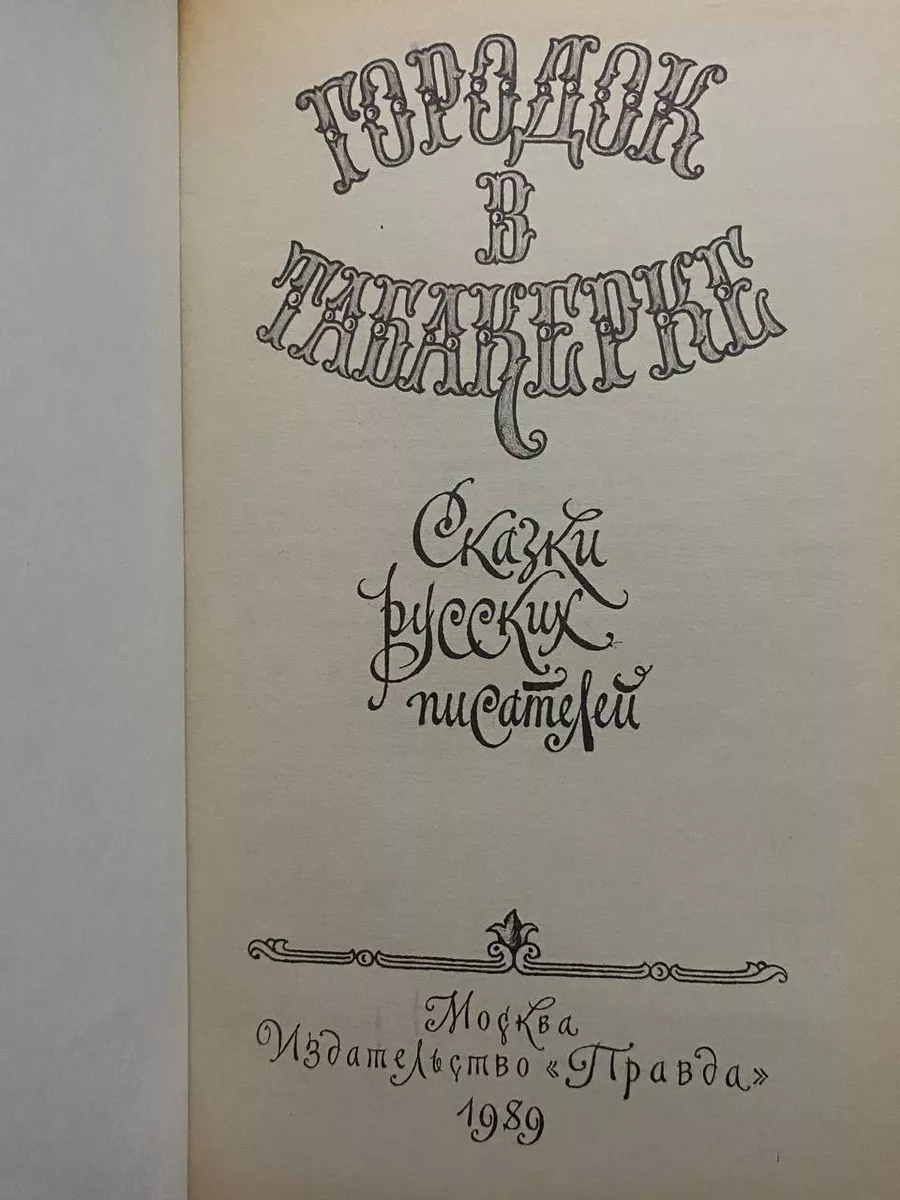 ГОРОДОК
В
ТАБАКЕРКЕ
Сказки
русских
писателей
Москва
Издательство «Правда»
1989